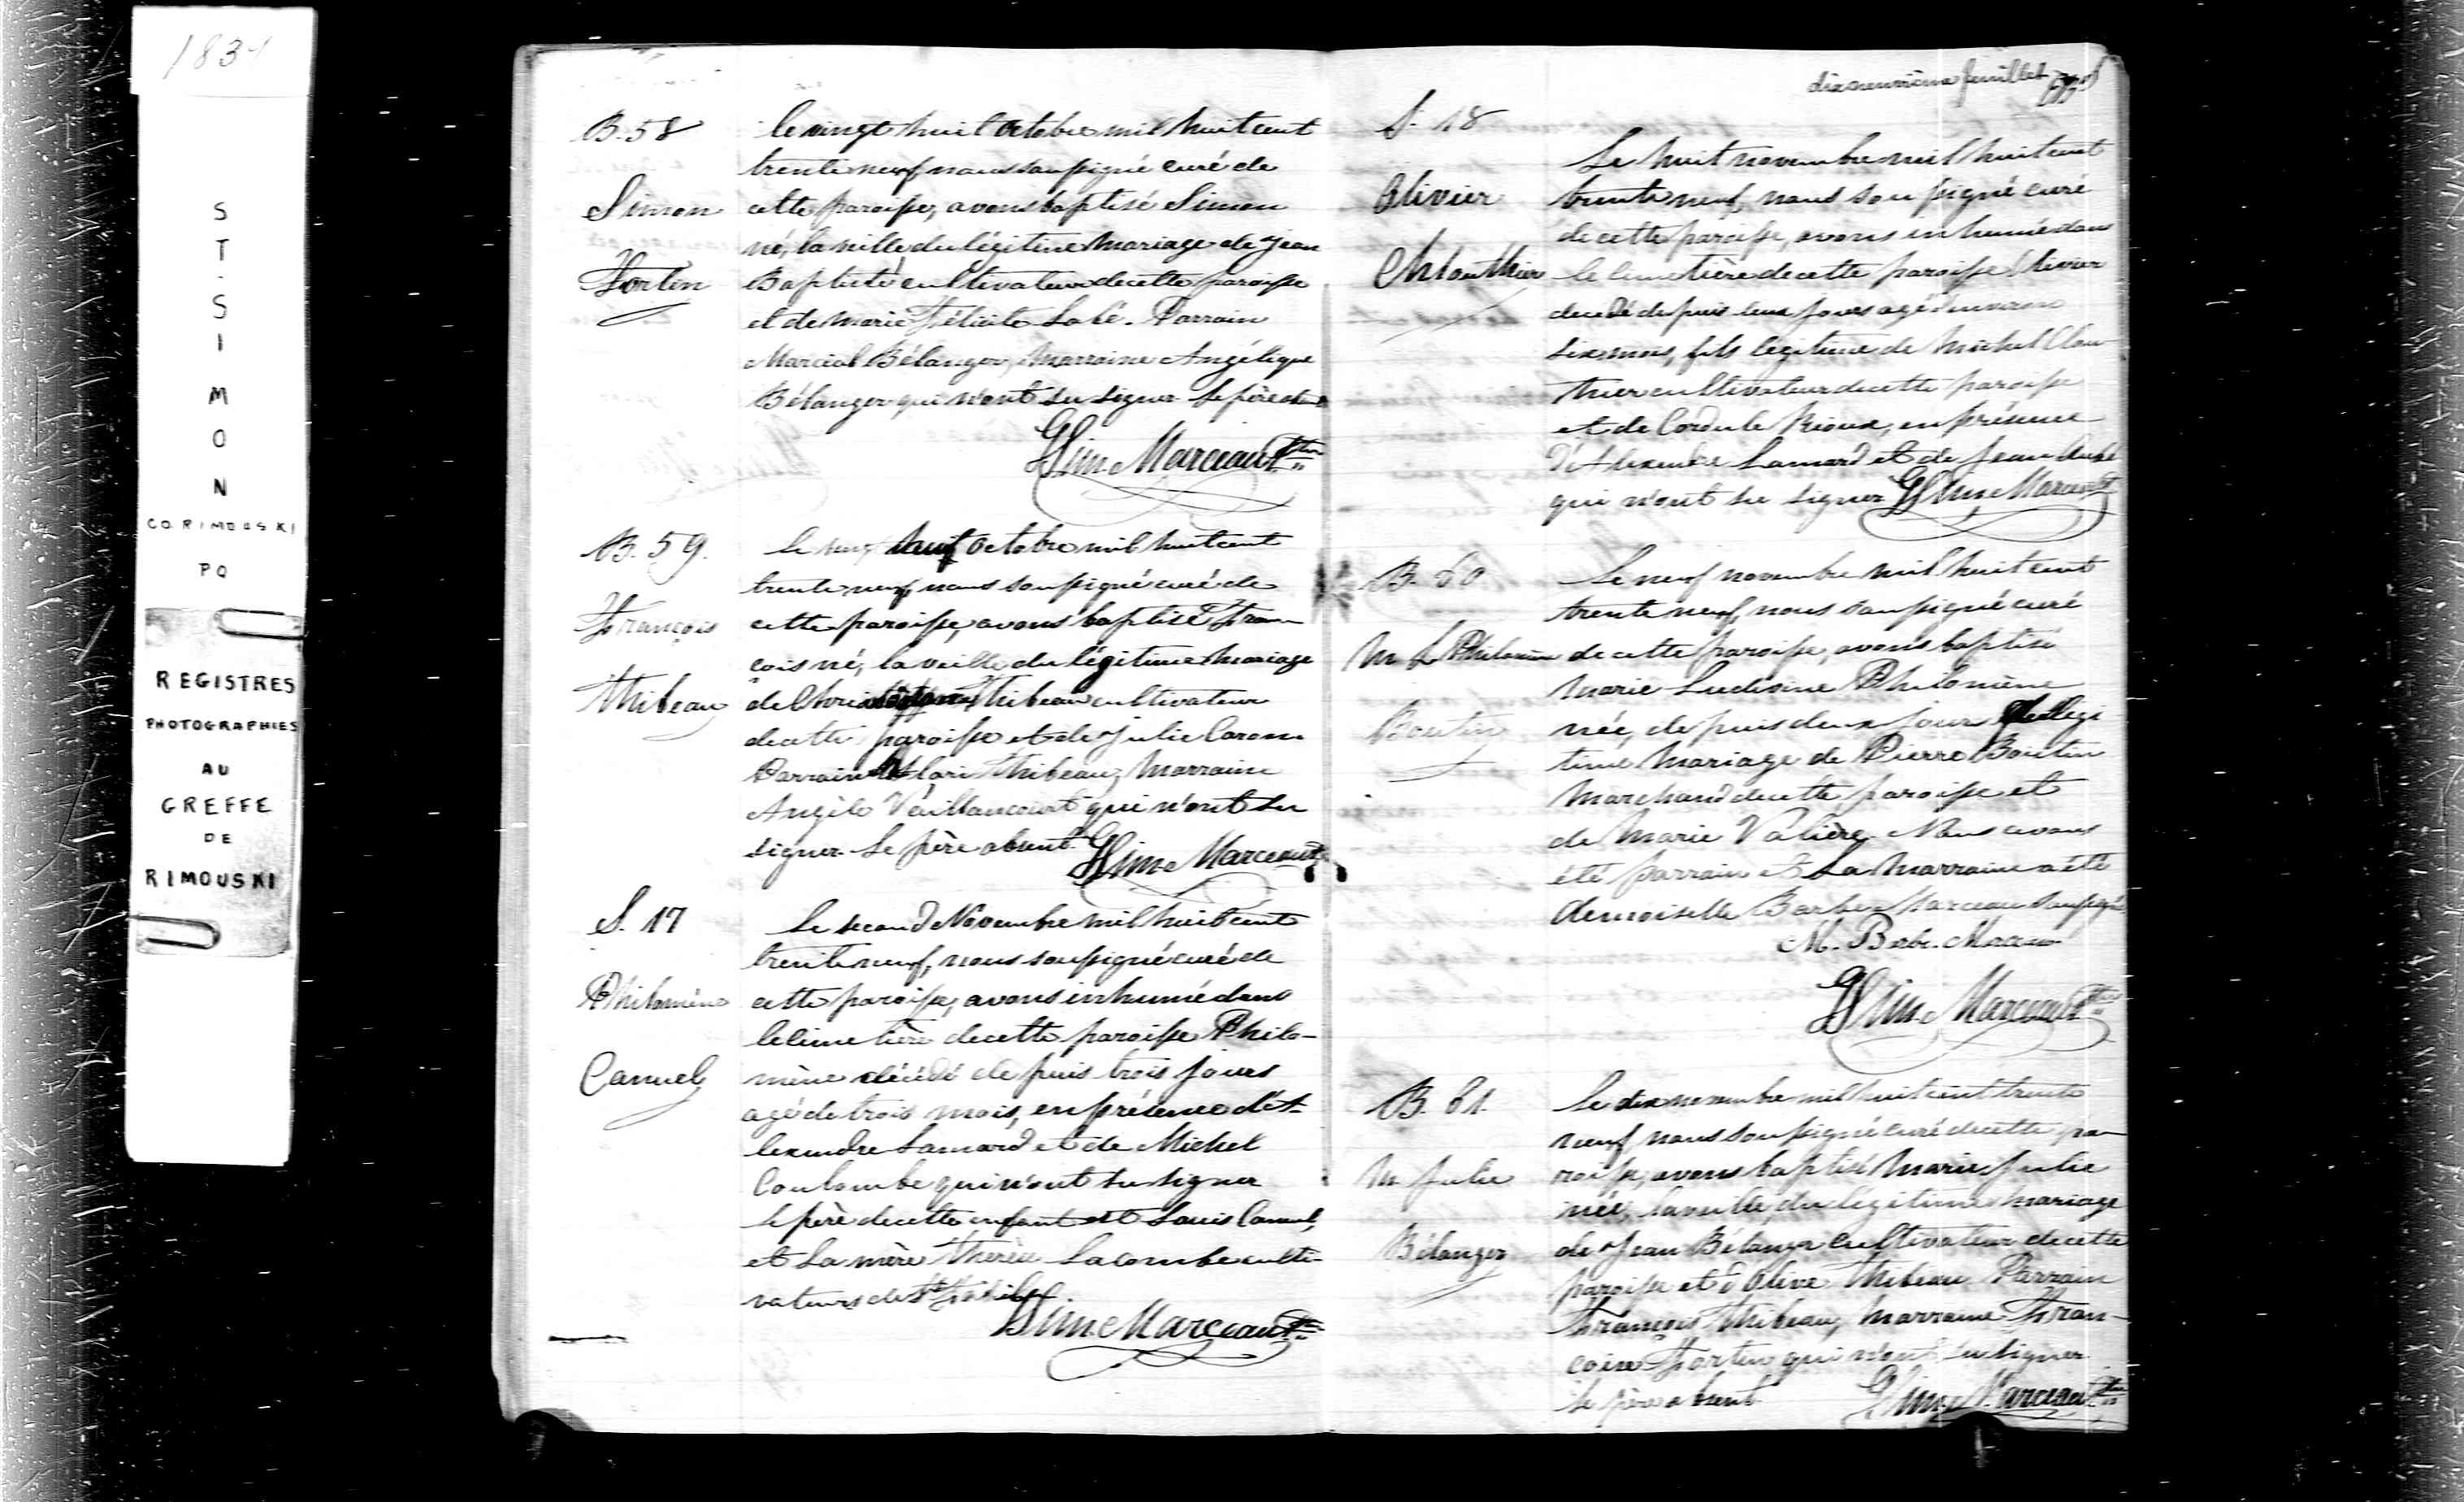 1839
S
T
-
S
I
M
O
N
CO. RIMOUSKI
PQ
REGISTRES
PHOTOGRAPHIES
AU
GREFFE
DE
RIMOUSKI
B. 58
Simon
Fortin
le vingt huit octobre mil huit cent
trente neuf nous soussigné curé de
cette paroisse, avons baptisé Simon
né, la veille du légitime mariage de Jean
Baptiste cultivateur de cette paroisse
et de Marie Félicité Labé. Parrain
Marcial Bélanger, Marraine Angélique
Bélanger qui n'ont su signer le père absent
Marceau Ptre
B. 59.
François
Thibeau
le neuf octobre mil huit cent
trente neuf, nous soussigné curé de
cette paroisse, avons baptisé Fran-
çois né, la veille du légitime mariage
de Thibeau cultivateur
de cette paroisse et de Julie Caron
Parrain Thibeau, Marraine
Angèle Vaillancourt qui n'ont su
signer le père absent. Marceau Ptre
S. 17
Philomène
Canuel
Le second Novembre mil huit cent
trente neuf, nous soussigné curé de
cette paroisse, avons inhumé dans
le cimetière de cette paroisse Philo-
mène décédé depuis trois jours
agé de trois mois, en présence d'A-
lexandre Lamard et de Michel
Coulombe qui n'ont su signer
le père de cette enfant est Louis Canuel,
et la mère Therèse Lacombe culti-
vateurs de
Marceau Ptre
dixneuvième feuillet
S. 18
Olivier
Clouthier
Le huit novembre mil huit cent
trente neuf, nous soussigné curé
de cette paroisse, avons inhumé dans
le cimetière de cette paroisse Olivier
décédé depuis deux jours agé d'environ
six mois, fils légitime de Michel Clou-
thier cultivateur de cette paroisse
et de Cordule Rioux, en présence
d'Alexandre Lamard et de Jean
qui n'ont su signer Marceau Ptre
B. 60
M. L. Philomène
Boutin
Le neuf novembre mil huit cent
trente neuf, nous soussigné curé
de cette paroisse, avons baptisé
Marie Ludivine Philomène
née, depuis deux jours du légi
time mariage de Pierre Boutin
Marchand de cette paroisse et
de Marie Valière. Nous avons
été parrain et la Marraine a été
demoiselle Barbe Marceau soussigné
M. Barbe Marceau
Marceau Ptre
B. 61.
M. Julie
Bélanger
Le dix novembre mil huit cent trente
neuf nous soussigné curé de cette pa-
roisse, avons baptisé Marie Julie
née, la veille, du légitime mariage
de Jean Bélanger cultivateur de cette
paroisse et d'Olive Thibeau Parrain
François Thibeau, Marraine Fran-
çoise Fortin qui n'ont su signer
le père absent Marceau Ptre